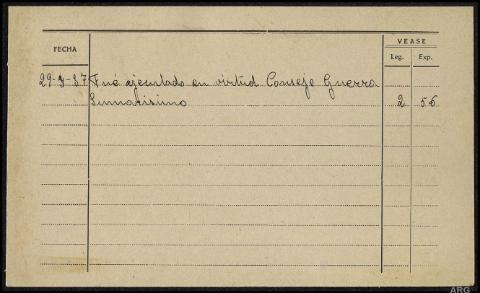 VEASE
FECHA
Leg. Exp.
29-3-37 Fué ejecutado en virtud Consejo Guerra
Sumarisimo 2 56
ARG